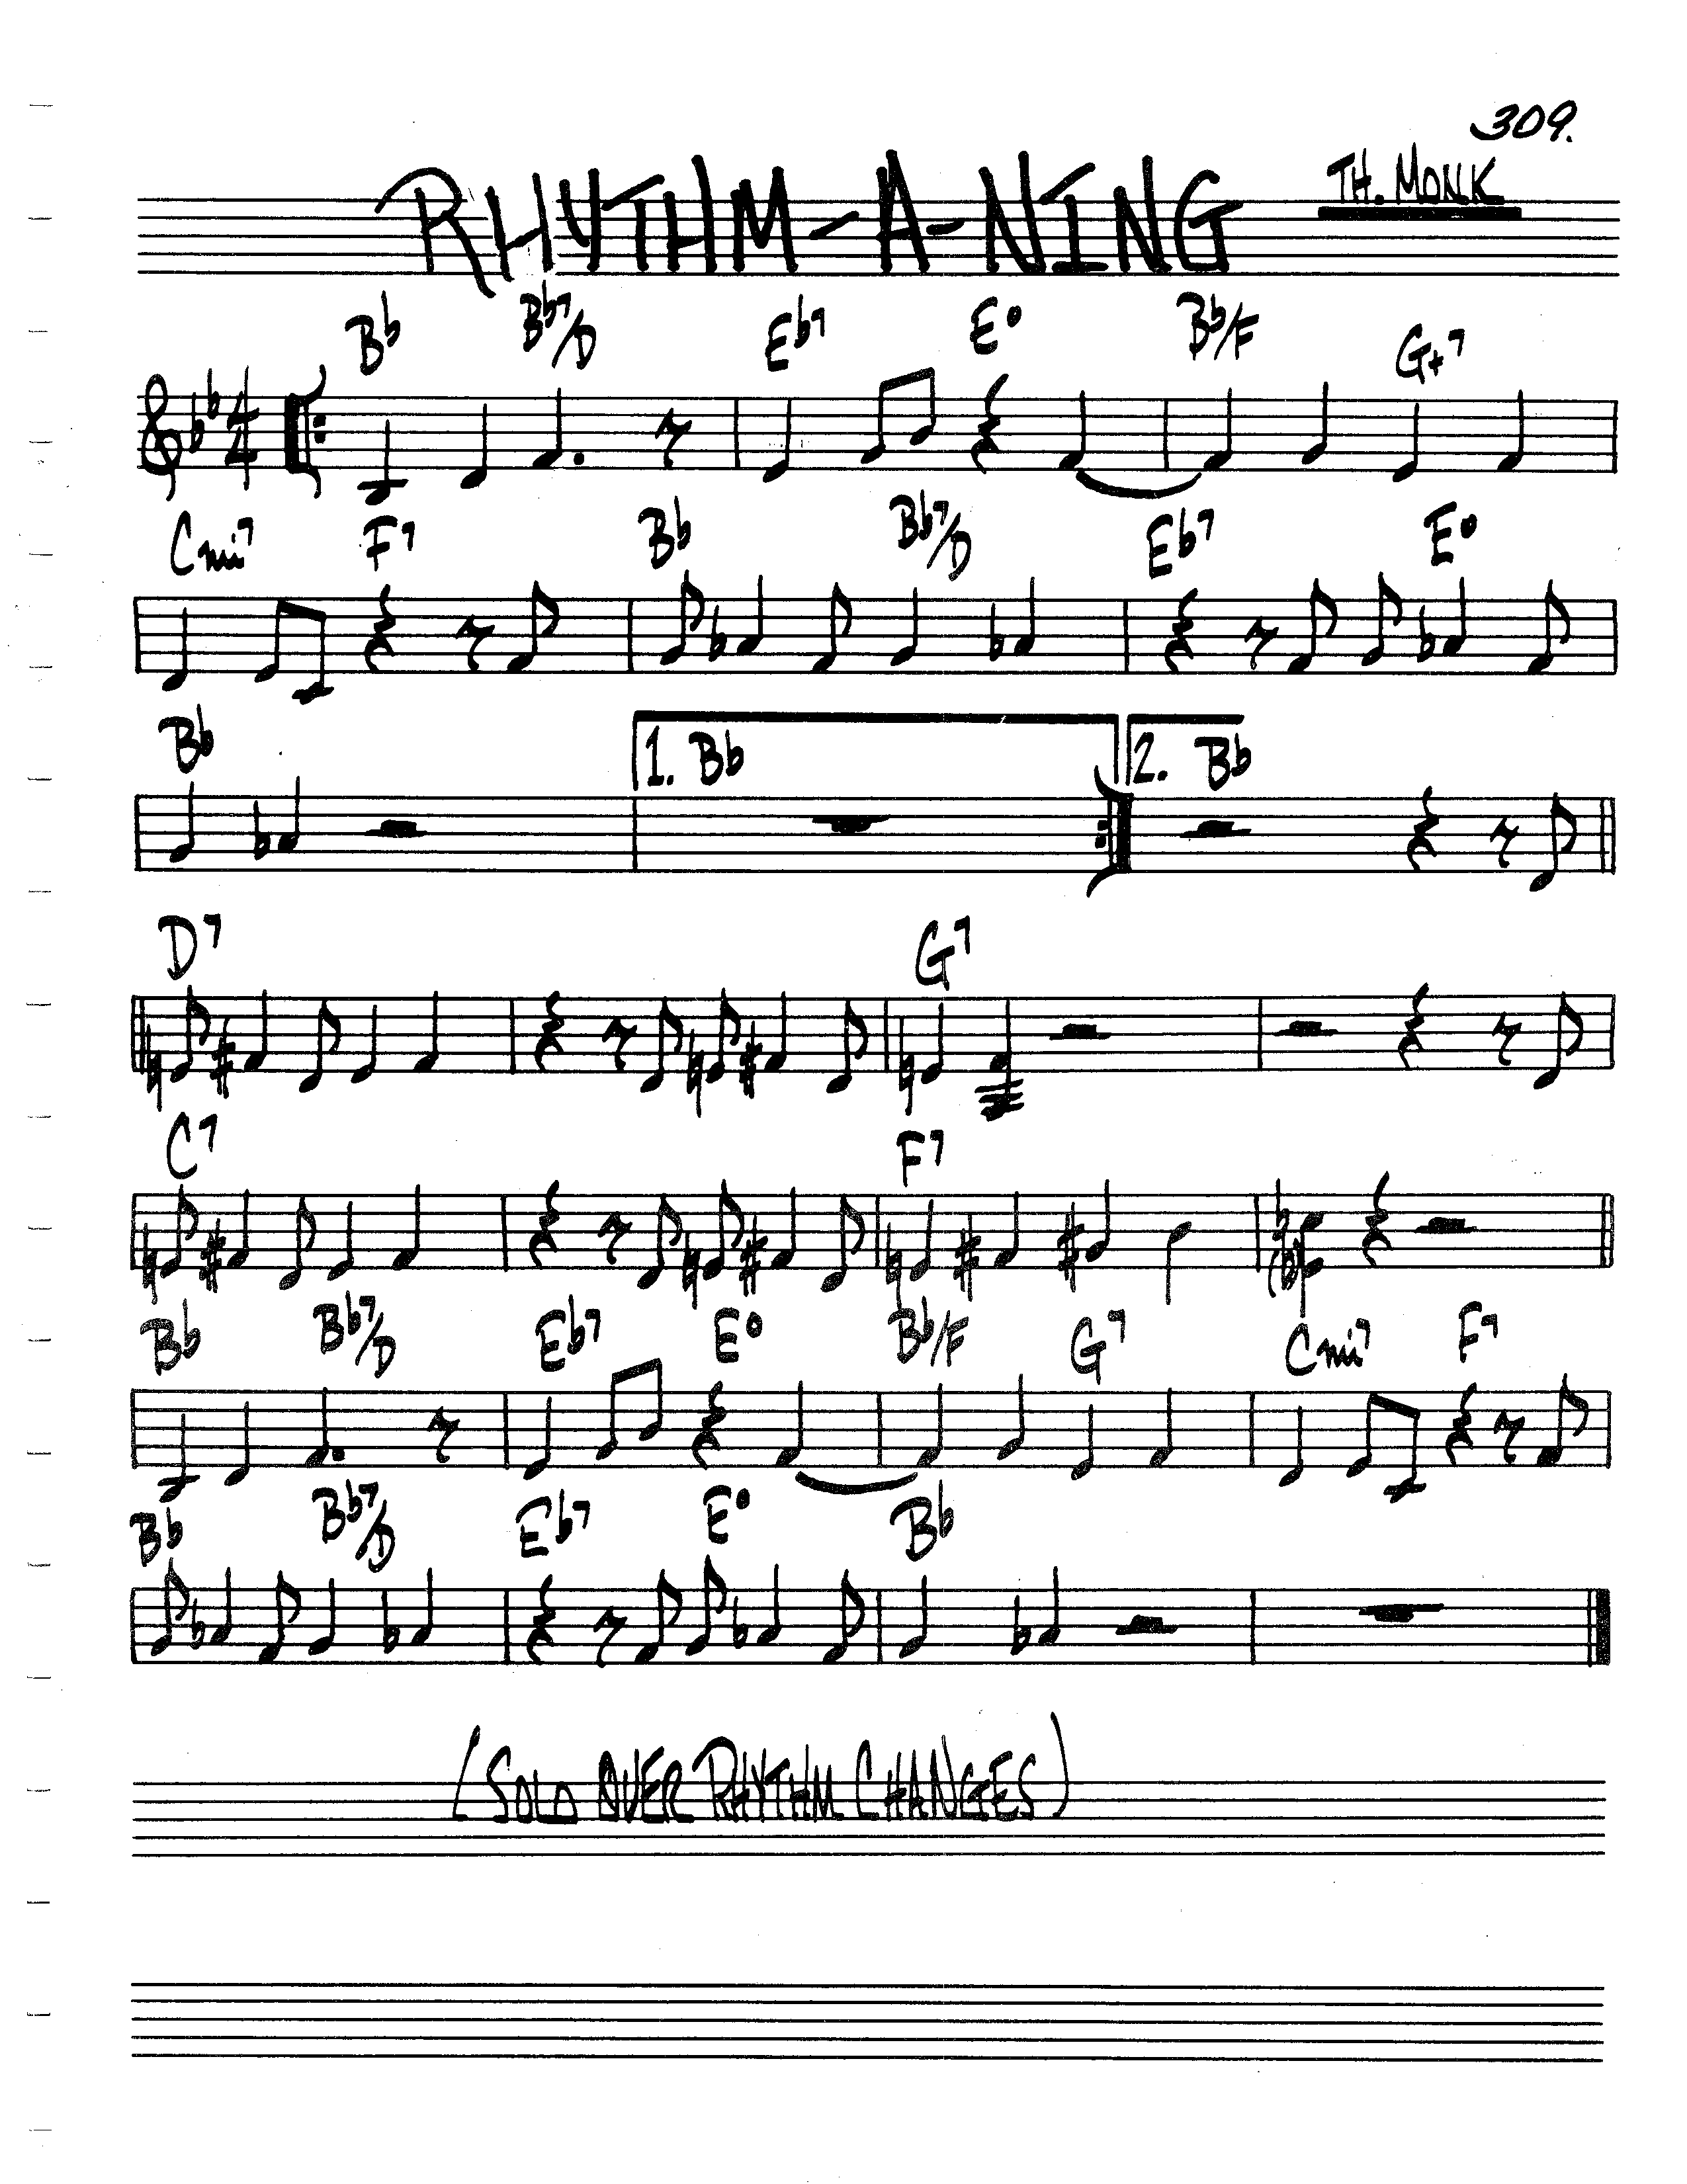 309.
RHYTHM-A-NING
TH. MONK
Bb Bb7/D Eb7 Eo Bb/F G+7
4/4
Cmi7 F7 Bb Bb7/D Eb7 Eo
Bb 1. Bb 2. Bb
D7 G7
C7 F7
Bb Bb7/D Eb7 Eo Bb/F G7 Cmi7 F7
Bb Bb7/D Eb7 Eo Bb
(SOLO OVER RHYTHM CHANGES)